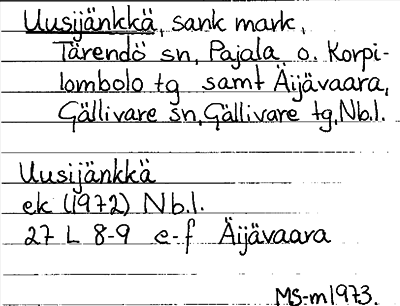 Uusijänkkä, sank mark,
Tärendö sn, Pajala o. Korpi-
lombolo tg samt Äijävaara,
Gällivare sn, Gällivare tg, Nb.l.
Uusijänkkä
ek (1972) Nb.l.
27 L 8-9 e-f Äijävaara
MS-m1973.